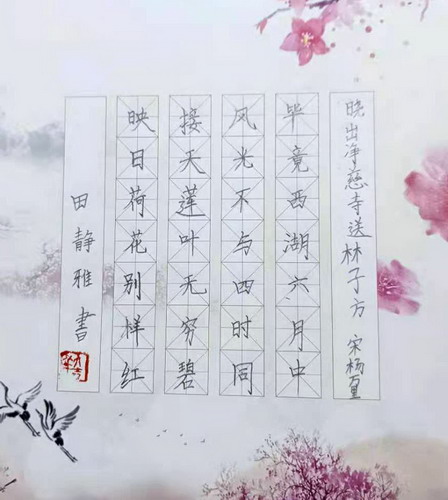 晓出净慈寺送林子方 宋杨万里
毕竟西湖六月中
风光不与四时同
接天莲叶无穷碧
映日荷花别样红
田静雅書